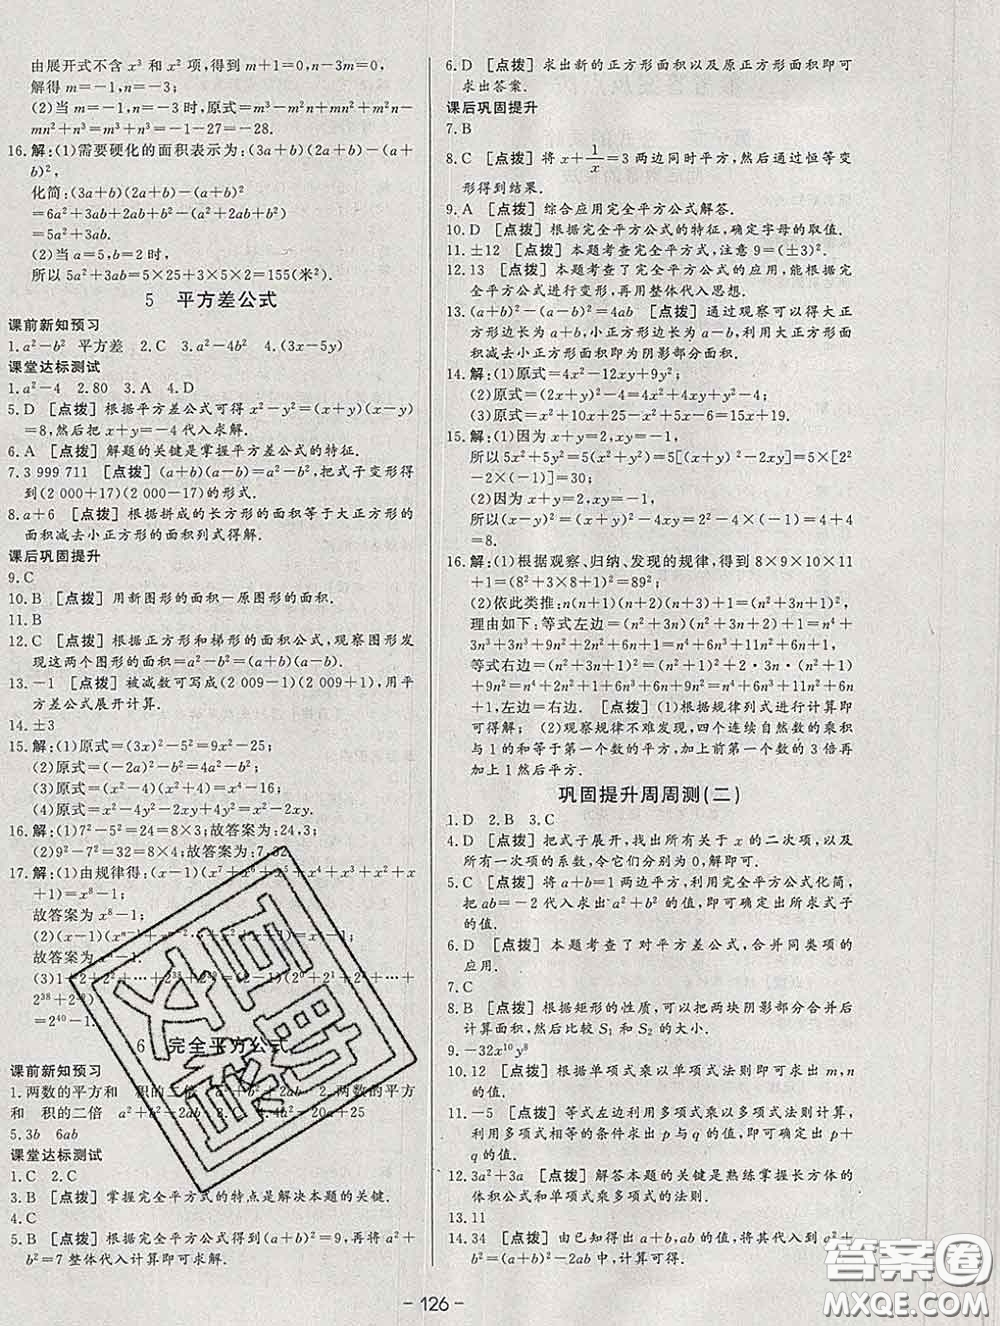 由展开式不含 x³ 和 x² 项,得到 m+1=0,n-3m=0,
解得 m=-1,n=-3;
(2)当 m=-1,n=-3 时,原式=m³-m²n+mn²+m²n-
mn²+n³=m³+n³=-1-27=-28.
16.解:(1)需要硬化的面积表示为:(3a+b)(2a+b)-(a+
b)²,
化简:(3a+b)(2a+b)-(a+b)²
=6a²+3ab+2ab+b²-(a²+2ab+b²)
=5a²+3ab.
(2)当 a=5,b=2 时,
所以 5a²+3ab=5×25+3×5×2=155(米²).
5 平方差公式
课前新知预习
1.a²-b² 平方差 2.C 3.a²-4b² 4.(3x-5y)
课堂达标测试
1.a²-4 2.80 3.A 4.D
5.D [点拨] 根据平方差公式可得 x²-y²=(x+y)(x-y)
=8,然后把 x+y=-4 代入求解.
6.A [点拨] 解题的关键是掌握平方差公式的特征.
7.3 999 711 [点拨] (a+b)(a-b)=a²-b²,把式子变形得
到(2 000+17)(2 000-17)的形式.
8.a+6 [点拨] 根据拼成的长方形的面积等于大正方形的
面积减去小正方形的面积列式得解.
课后巩固提升
9.C
10.B [点拨] 用新图形的面积-原图形的面积.
11.B
12.C [点拨] 根据正方形和梯形的面积公式,观察图形发
现这两个图形的面积=a²-b²=(a+b)(a-b).
13.-1 [点拨] 被减数可写成(2 009-1)(2 009+1),用平
方差公式展开计算.
14.±3
15.解:(1)原式=(3x)²-5²=9x²-25;
(2)原式=(-2a)²-b²=4a²-b²;
(3)原式=(x²-4)(x²+4)=x⁴-16;
(4)原式=x²-4y²-x²+y²=-3y².
16.解:(1)7²-5²=24=8×3;故答案为:24,3;
(2)9²-7²=32=8×4;故答案为:7,32
17.解:(1)由规律得:(x-1)(x⁷+x⁶+x⁵+x⁴+x³+x²+x
+1)=x⁸-1;
故答案为 x⁸-1;
(2)(x-1)(xⁿ⁻¹+
故答案为
(3)1+2+2²+…+2³⁸+2³⁹=(2-1)(2⁰+2¹+2²+…+
2³⁸+2³⁹)
=2⁴⁰-1.
6 完全平方公式
课前新知预习
1.两数的平方和 积的二倍 a²+b²+2ab 2.两数的平方
和 积的二倍 a²+b²-2ab 3.C 4.4a²-20a+25
5.3b 6ab
课堂达标测试
1.C 2.C
3.B [点拨] 掌握完全平方式的特点是解决本题的关键.
4.C
5.B [点拨] 根据完全平方公式得到(a+b)²=9,再将 a²+
b²=7 整体代入计算即可求解.
6.D [点拨] 求出新的正方形面积以及原正方形面积即可
求出答案.
课后巩固提升
7.B
8.C [点拨] 将 x+1/x=3 两边同时平方,然后通过恒等变
形得到结果.
9.A [点拨] 综合应用完全平方公式解答.
10.D [点拨] 根据完全平方公式的特征,确定字母的取值.
11.±12 [点拨] 本题考查完全平方式,注意 9=(±3)².
12.13 [点拨] 本题考查了完全平方公式的应用,能根据完
全平方公式进行变形,再用整体代入思想.
13.(a+b)²-(a-b)²=4ab [点拨] 通过观察可以得大正
方形边长为 a+b,小正方形边长为 a-b,利用大正方形
面积减去小正方形面积即为阴影部分面积.
14.解:(1)原式=4x²-12xy+9y²;
(2)原式=(2x+y)²-4=4x²+4xy+y²-4;
(3)原式=x²+10x+25-x²+5x-6=15x+19.
15.解:(1)因为 x+y=2,xy=-1,
所以5x²+5y²=5(x²+y²)=5[(x+y)²-2xy]=5×[2²
-2×(-1)]=30;
(2)因为 x+y=2,xy=-1,
所以(x-y)²=(x+y)²-4xy=2²-4×(-1)=4+4
=8.
16.解:(1)根据观察、归纳、发现的规律,得到 8×9×10×11
+1=(8²+3×8+1)²=89²;
(2)依此类推:n(n+1)(n+2)(n+3)+1=(n²+3n+1)²,
理由如下:等式左边=(n²+3n)(n²+3n+2)+1=n⁴+
3n³+3n³+9n²+2n²+6n+1=n⁴+6n³+11n²+6n+1,
等式右边=(n²+3n+1)²=(n²+1)²+2·3n·(n²+1)
+9n²=n⁴+2n²+1+6n³+6n+9n²=n⁴+6n³+11n²+6n
+1,左边=右边. [点拨] (1)根据规律列式进行计算即
可得解; (2)观察规律不难发现,四个连续自然数的乘积
与 1 的和等于第一个数的平方,加上前第一个数的 3 倍再
加上 1 然后平方.
巩固提升周周测(二)
1.D 2.B 3.C
4.D [点拨] 把式子展开,找出所有关于 x 的二次项,以及
所有一次项的系数,令它们分别为 0,解即可.
5.C [点拨] 将 a+b=1 两边平方,利用完全平方公式化简,
把 ab=-2 代入求出 a²+b² 的值,即可确定出所求式子
的值.
6.D [点拨] 本题考查了对平方差公式,合并同类项的
应用.
7.C
8.B [点拨] 根据矩形的性质,可以把两块阴影部分合并后
计算面积,然后比较 S₁ 和 S₂ 的大小.
9.-32x¹⁰y⁸
10.12 [点拨] 根据单项式乘以单项式法则即可求出 m,n
的值.
11.-5 [点拨] 等式左边利用多项式乘以多项式法则计算,
利用多项式相等的条件求出 p 与 q 的值,即可确定出 p+
q 的值.
12.3a³+3a [点拨] 解答本题的关键是熟练掌握长方体的
体积公式和单项式乘多项式的法则.
13.11
14.34 [点拨] 由已知得出 a+b、ab 的值,将其代入到 a²+
b²=(a+b)²-2ab 中,计算可得.
- 126 -
答案圈
MXQE.COM